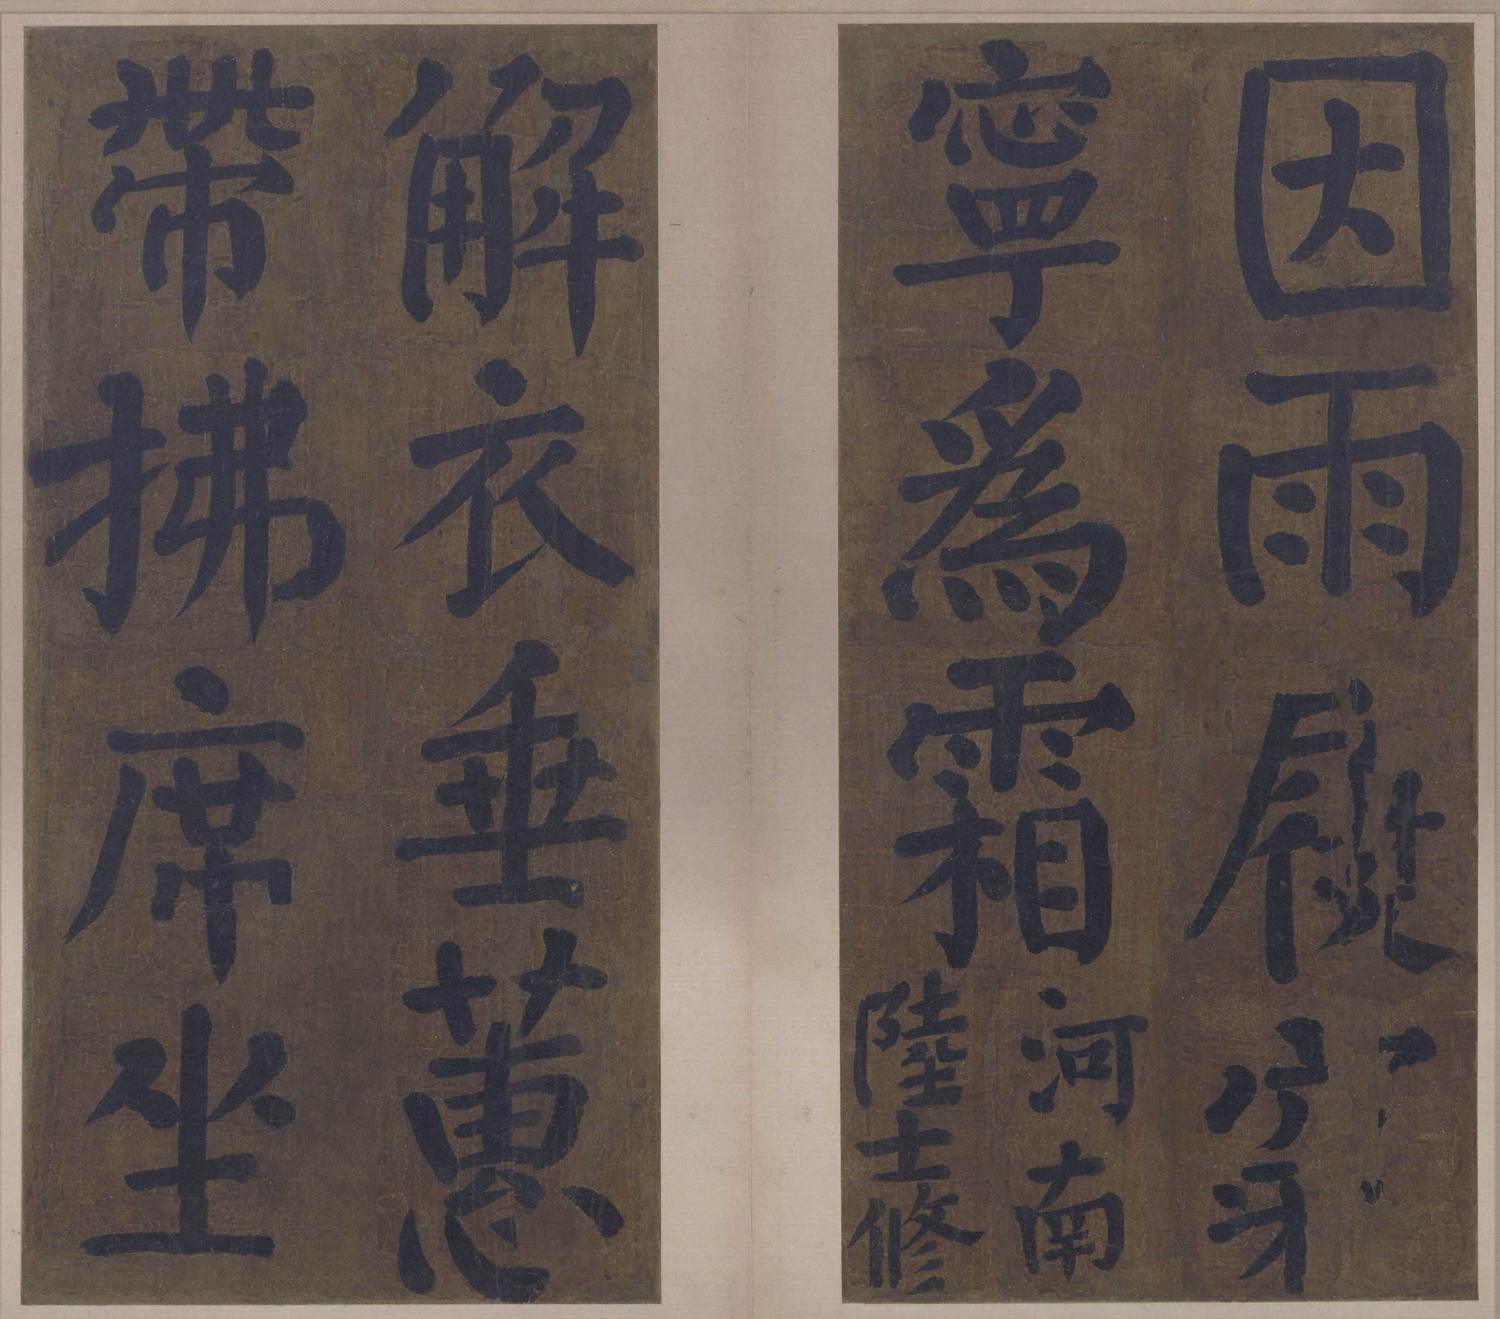 因雨履穿
寧爲霜
河南
陸士修
解衣垂蕙
帶拂席坐